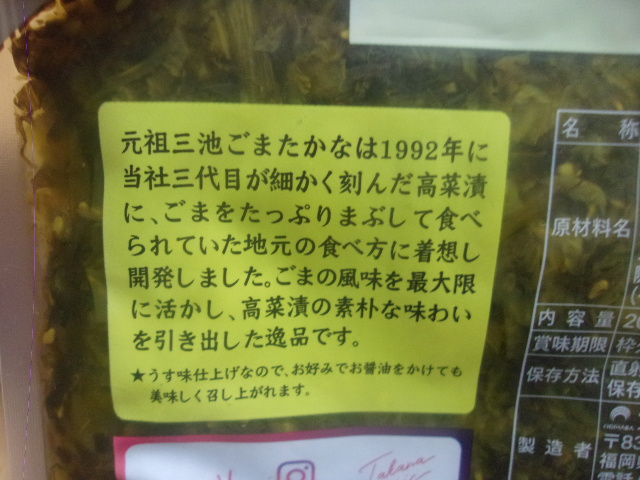 元祖三池ごまたかなは1992年に
当社三代目が細かく刻んだ高菜漬
に、ごまをたっぷりまぶして食べ
られていた地元の食べ方に着想し
開発しました。ごまの風味を最大限
に活かし、高菜漬の素朴な味わい
を引き出した逸品です。
★うす味仕上げなので、お好みでお醤油をかけても
美味しく召し上がれます。
名 称
原材料名
内容量 20
賞味期限 枠
保存方法 直射
保存
製造者 〒83
福岡県
電話
Takana